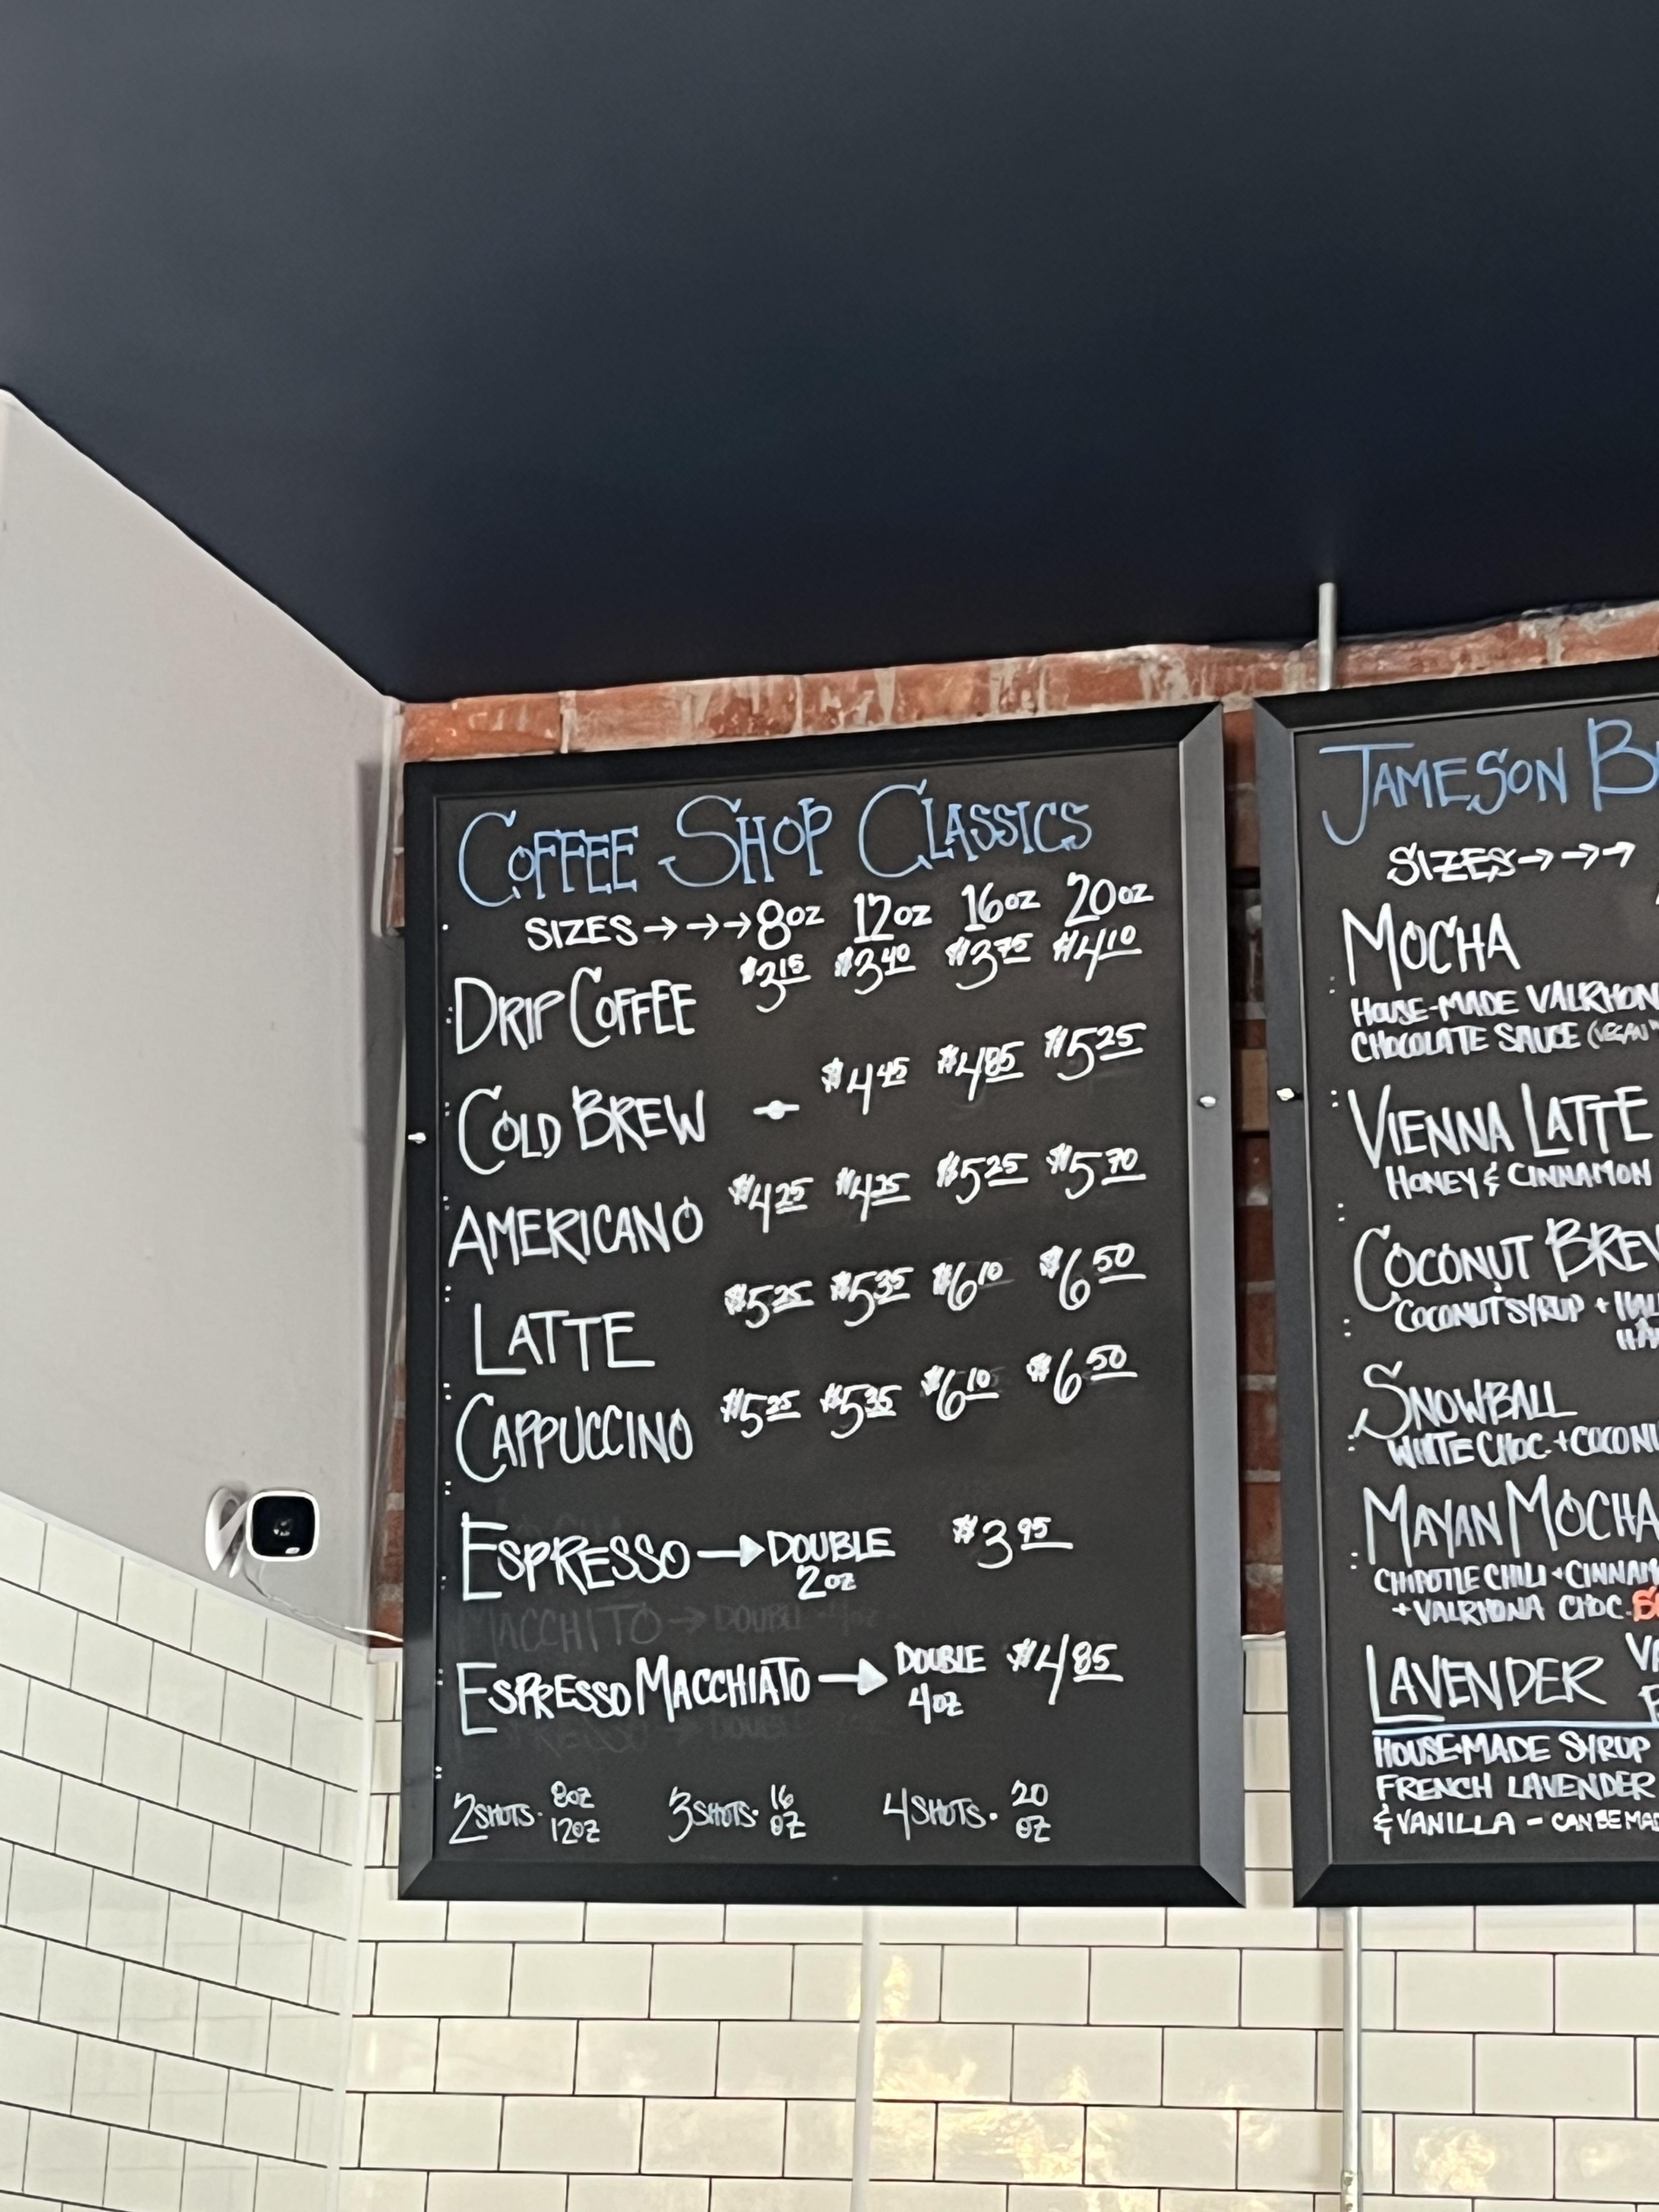 COFFEE SHOP CLASSICS
SIZES → → → 8oz 12oz 16oz 20oz
DRIP COFFEE $3.15 $3.40 $3.75 $4.10
COLD BREW - $4.45 $4.85 $5.25
AMERICANO $4.25 $4.35 $5.25 $5.70
LATTE $5.25 $5.35 $6.10 $6.50
CAPPUCCINO $5.25 $5.35 $6.10 $6.50
ESPRESSO → DOUBLE $3.95
2oz
MACCHITO → DOUBLE 4oz
ESPRESSO MACCHIATO → DOUBLE $4.85
4oz
2 SHOTS · 8oz 3 SHOTS · 16 4 SHOTS · 20
12oz oz oz
JAMESON
SIZES → → →
MOCHA
HOUSE-MADE VALRHON
CHOCOLATE SAUCE (VEGAN
VIENNA LATTE
HONEY & CINNAMON
COCONUT BREV
COCONUT SYRUP +
SNOWBALL
WHITE CHOC. + COCONU
MAYAN MOCHA
CHIPOTLE CHILI + CINNAM
+ VALRHONA CHOC.
LAVENDER
HOUSE-MADE SYRUP
FRENCH LAVENDER
& VANILLA - CAN BE MAD